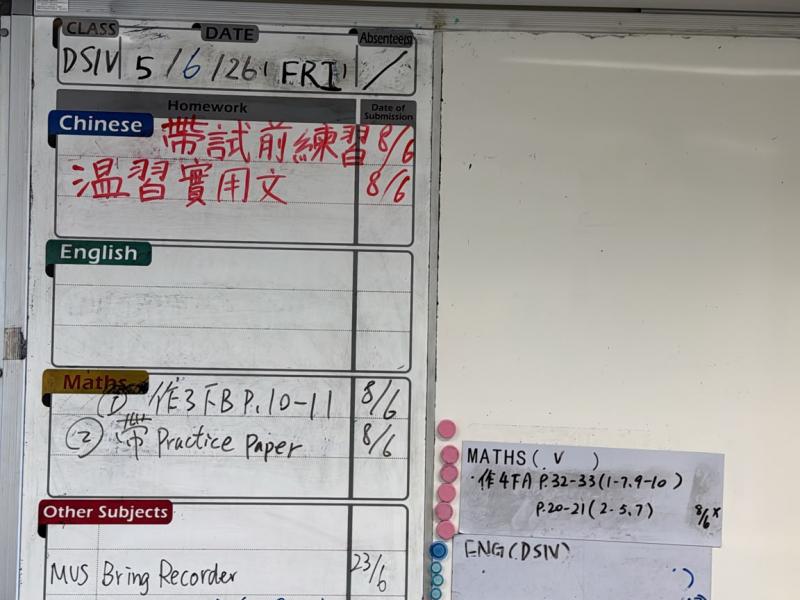 CLASS DATE Absentee(s)
DSIV 5/6/26 (FRI) /
Homework Date of Submission
Chinese 帶試前練習 8/6
温習實用文 8/6
English
Maths
① 作3下B P.10-11 8/6
② 帶 Practice Paper 8/6
Other Subjects
MUS Bring Recorder 23/6
MATHS( V )
·作4下A P.32-33(1-7,9-10)
P.20-21(2-5,7) 8/6
ENG(DSIV)